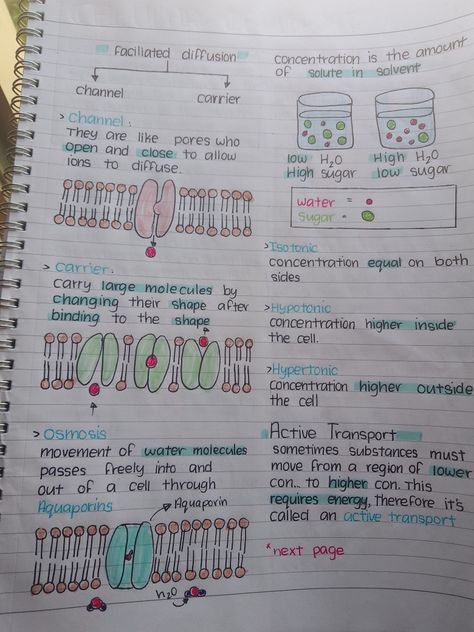 faciliated diffusion
channel
carrier
> Channel:
They are like pores who
open and close to allow
ions to diffuse.
> Carrier:
carry large molecules by
changing their shape after
binding to the shape
> Osmosis
movement of water molecules
passes freely into and
out of a cell through
Aquaporins
Aquaporin
H2O
concentration is the amount
of solute in solvent
low H2O
High sugar
High H2O
low sugar
water =
sugar =
> Isotonic
concentration equal on both
sides
> Hypotonic
concentration higher inside
the cell.
> Hypertonic
concentration higher outside
the cell
Active Transport
sometimes substances must
move from a region of lower
con... to higher con. This
requires energy, therefore it's
called an active transport
*next page